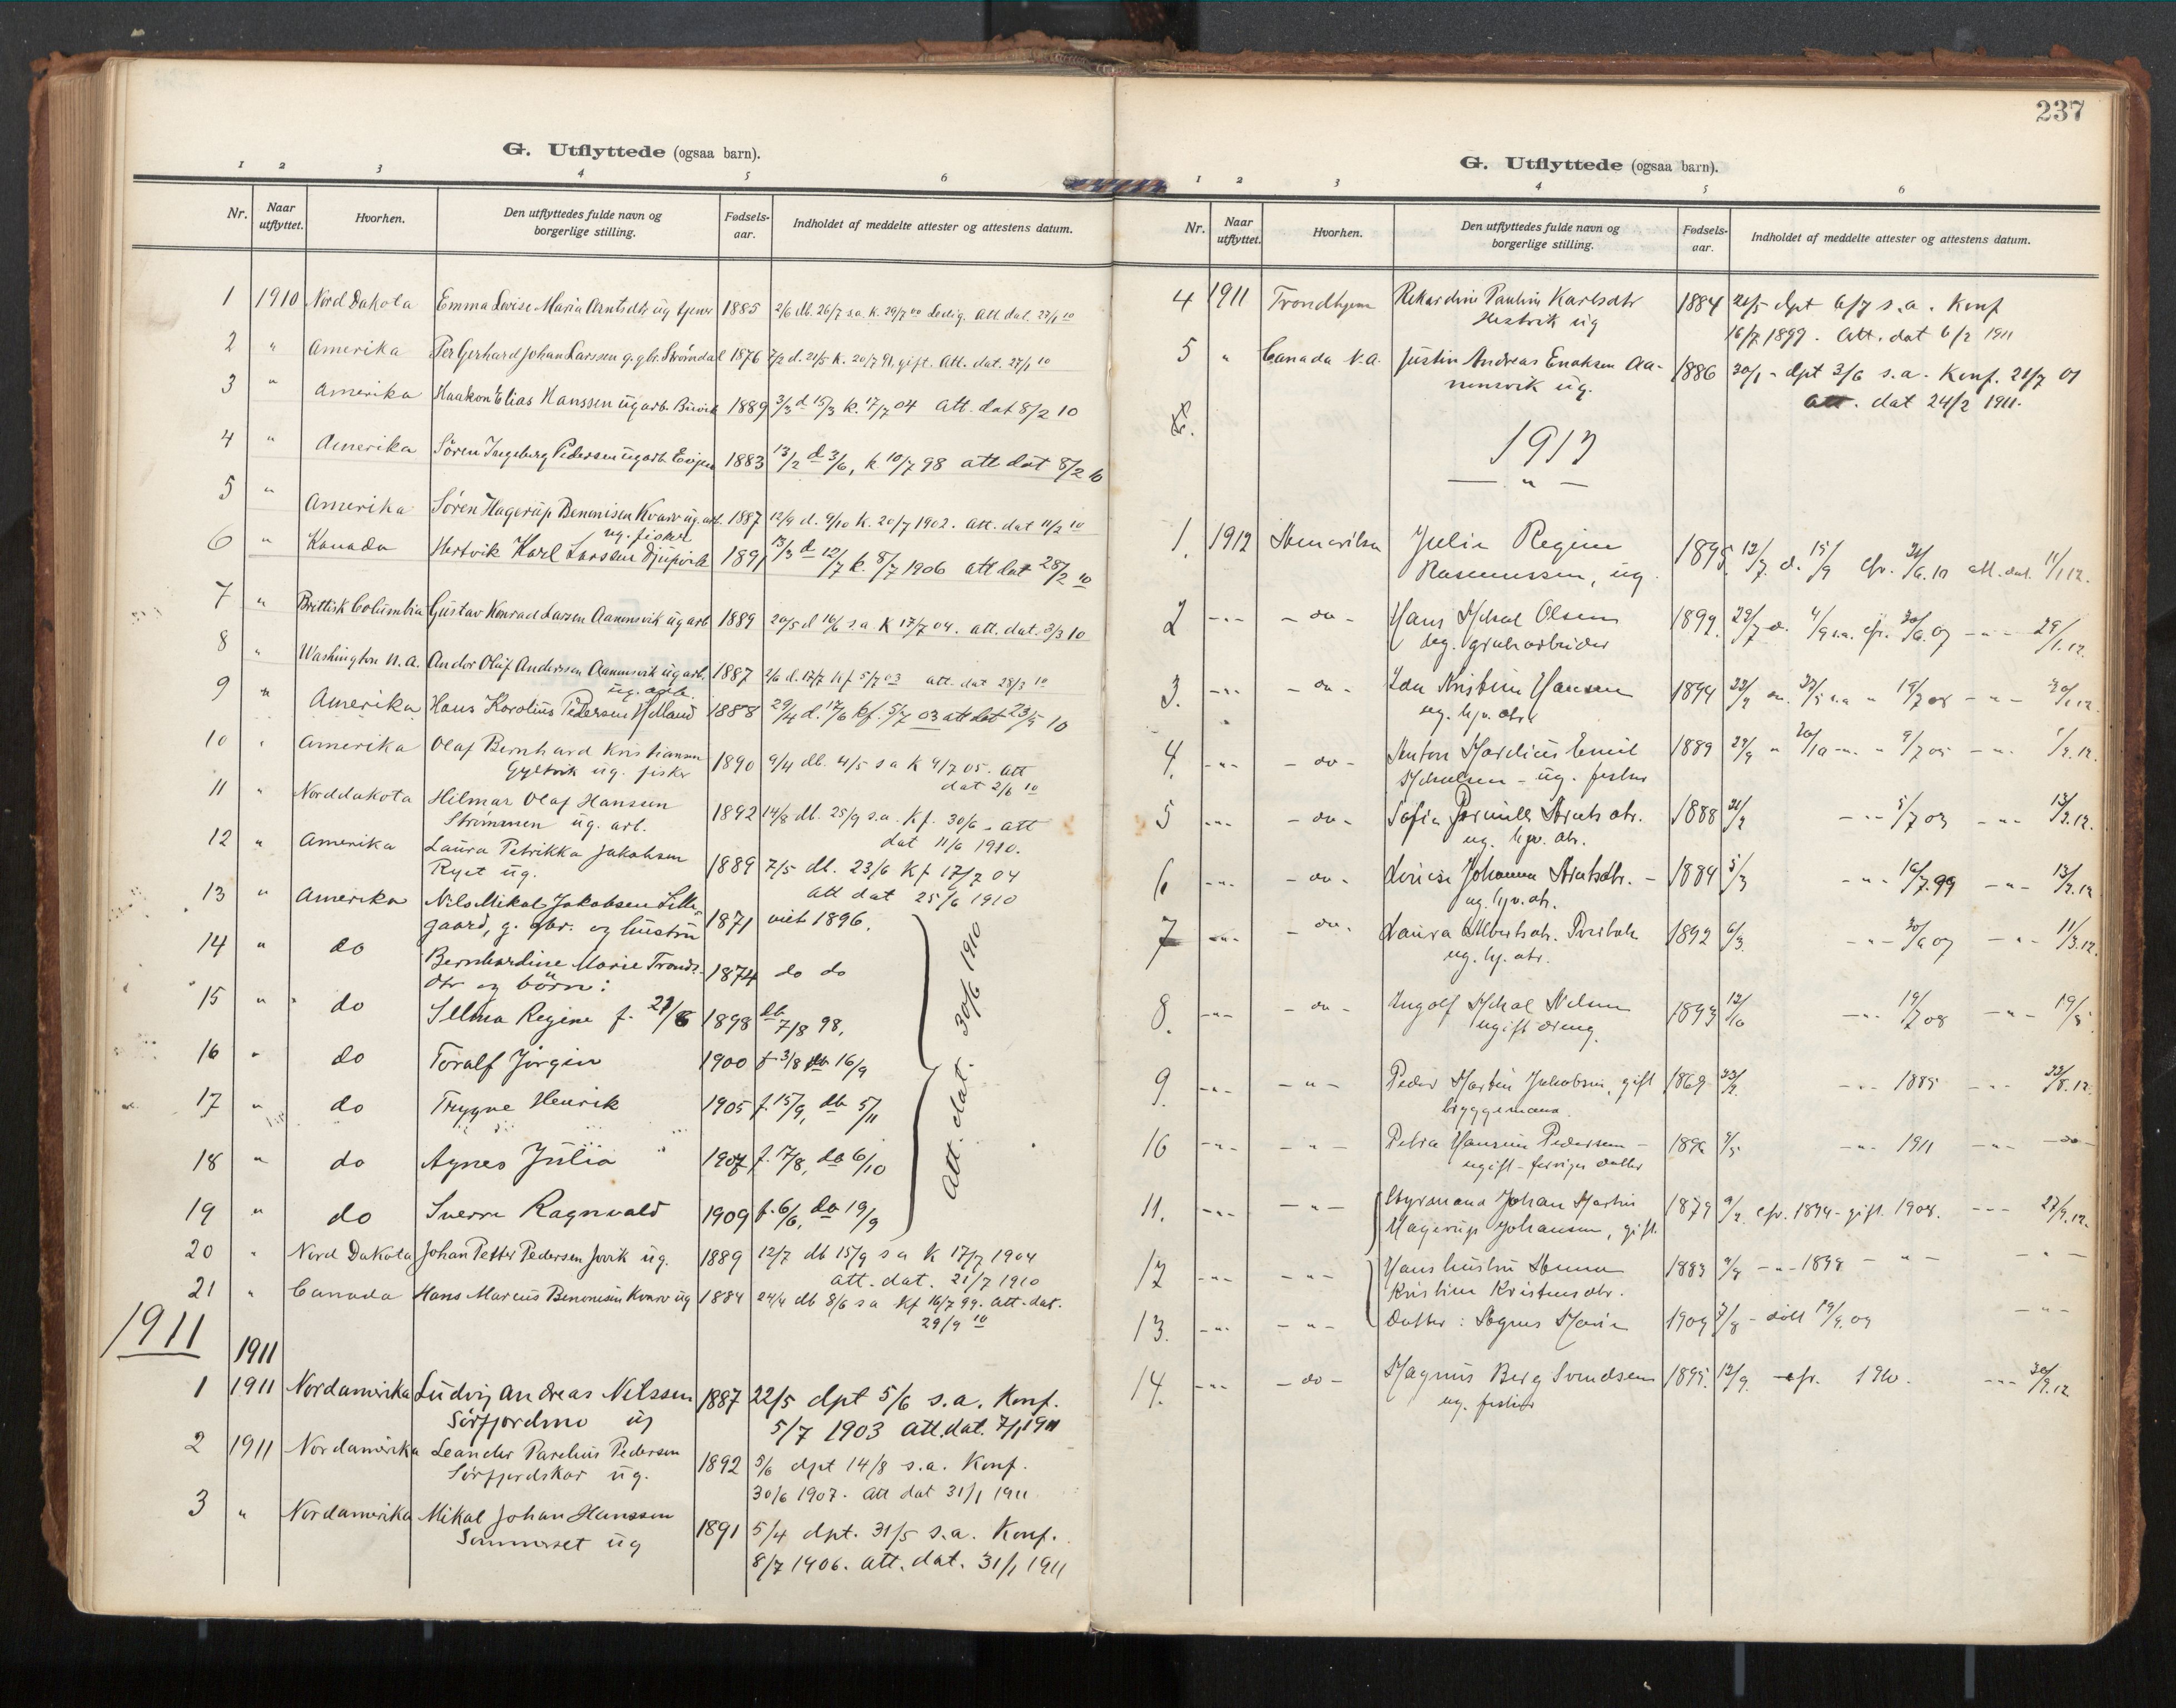 G. Utflyttede (ogsaa barn).
1 2 3 4 5 6
Nr. Naar utflyttet. Hvorhen. Den utflyttedes fulde navn og borgerlige stilling. Fødsels-aar. Indholdet af meddelte attester og attestens datum.
1 1910 Nord Dakota Emma Lovise Maria Arntsdtr ug tjener 1885 2/6 db. 26/7 s.a. k. 29/7 00 Ledig. Att. dat. 27/1 10
2 " Amerika Per Gerhard Johan Larssen g. gbr. Strömdal 1876 7/2 d. 21/5 k. 20/7 91, gift. Att. dat. 27/1 10
3 " Amerika Haakon Elias Hanssen ug arb. 1889 3/3 d 15/3 k. 17/7 04 Att. dat 8/2 10
4 " Amerika Sören Ingeburg Pedersen ug arb. 1883 13/2 d 3/6, k. 10/7 98 att dat 8/2 10
5 " Amerika Sören Hagerup Benonisen Kvarv ug. arb. 1887 12/9 d. 9/10 k. 20/7 1902. att. dat 11/2 10
ug. fisker
6 " Kanada Hertvik Karl Larssen Djupvik 1891 13/3 d 12/7 k. 8/7 1906 att dat 28/2 10
7 " Brittisk Columbia Gustav Konrad Larsen Aanensvik ug arb 1889 20/5 d 16/6 s.a K 17/7 04. att. dat. 3/3 10
8 " Washington N.A. Andor Oluf Anderssen Aanensvik ug arb. 1887 2/6 d. 17/7 kf 5/7 03 att. dat 28/3 10
ug. arb.
9 " Amerika Hans Karolius Pedersen Helland 1888 29/4 d. 17/6 kf. 5/7 03 att dat 23/5 10
10 " Amerika Olaf Bernhard Kristiansen 1890 9/4 db. 4/5 s a K 9/7 05. att
Gyltvik ug. fisker dat 2/6 10
11 " Norddakota Hilmar Olaf Hanssen 1892 14/8 db. 25/9 s.a. kf. 30/6 - att
Strömmen ug. arb. dat 11/6 1910.
12 " Amerika Laura Petrikka Jakobsen 1889 7/5 db. 23/6 kf 17/7 04
Ryet ug. att dat 25/6 1910
13 " Amerika Nils Mikal Jakobsen Lille-
gaard, g. gbr. og hustru 1871 viet 1896.
14 " do Bernhardine Marie Tronds-
dtr og börn: 1874 do do
15 " do Selma Regine f. 21/6 1898 db 7/8 98.
16 " do Toralf Jörgen 1900 f 3/8 db 16/9
17 " do Trygve Henrik 1905 f. 15/9, db 5/11
18 " do Agnes Julia 1907 f. 17/8, db 6/10
19 " do Sverre Ragnvald 1909 f. 6/6, db 19/9
Att. dat. 30/6 1910
20 " Nord Dakota Johan Petter Pedersen Jovik ug. 1889 12/7 db 15/9 s a K 17/7 1904
att. dat. 21/7 1910
21 " Canada Hans Marius Benonisen Kvarv ug 1884 24/4 db 8/6 s a kf 16/7 99. att. dat.
29/9 10
1911
1911
1 1911 Nordamerika Ludvig Andreas Nilssen 1887 22/5 dpt 5/6 s.a. Konf.
Sörfjordmo ug 5/7 1903 att. dat. 7/1 1911
2 1911 Nordamerika Leander Parelius Pedersen 1892 5/6 dpt 14/8 s.a. Konf.
Sörfjordskar ug. 30/6 1907. att dat 31/1 1911
3 " Nordamerika Mikal Johan Hanssen 1891 5/4 dpt. 31/5 s.a. Konf.
Sommerset ug 8/7 1906. att. dat. 31/1 1911
237
G. Utflyttede (ogsaa barn).
1 2 3 4 5 6
Nr. Naar utflyttet. Hvorhen. Den utflyttedes fulde navn og borgerlige stilling. Fødsels-aar. Indholdet af meddelte attester og attestens datum.
4 1911 Trondhjem Rikardine Pauline Karlsdtr 1884 21/5 dpt 6/7 s.a. Konf
Hestvik ug 16/7 1899. Att. dat 6/2 1911
5 " Canada N.A. Justin Andreas Enoksen Aa- 1886 30/1 - dpt 3/6 s.a. Konf. 21/7 01
nensvik ug. att. dat 24/2 1911.
1913
— " —
1. 1912 Amerika Julie Regine 1895. 12/7. d. 15/9 cfr. att. dat. 11/1 12.
Rasmussen, ug.
2 -"- - do - Hans Mikal Olsen 1892. 29/7 d. 4/9 s.a. cfr. 30/6.07 -"- 29/1.12.
ug. grubarbeider
3. -"- - do - Ida Kristine Hansen 1894 19/7 08 -"-
ug. hjv. dtr.
4. -"- - do - Anton Mardius Emil 1889 9/7 05 -"-
Mikalsen - ug. fisker
5 -"- - do - Sofie Arntsdtr. 1888 21/2 -"- 5/7 03 -"- 13/3.12.
ug. hjv. dtr.
6 -"- - do - Lovise Johanna Arntsdtr. - 1884 5/3 -"- 16/7.99 -"- 13/3.12
ug. hjv. dtr.
7 -"- - do - Laura Albertsdtr. 1892 6/3. -"- 30/6 07 -"- 11/3.12.
ug. hj. dtr.
8. -"- - do - Ingolf Mikal Nilsen 1893 12/10 -"- 19/7 08 -"- 19/5
ugift dreng.
9. -"- - " - Peder Martin Jakobsen, gift 1869 23/2. -"- 1885 -"- 23/8.12.
bryggemand.
10 -"- - " - Petra Hansine Pedersen - 1896 9/5 -"- 1911 -"- -do-
ugift - forriges datter
11. -"- - " - Styrmand Johan Martin 1879 9/2. cfr. 1894 - gift. 1908. -"- 27/9.12.
Hagerup Johansen, gift.
12 -"- - " - Hans hustru Anna 1883 9/8 -"- 1898 - " - - " -
Kristine Kristensdtr.
13. -"- - " - Datter: Agnes Marie 1909 7/8 - döbt 19/9.09 - " -
14. -"- - do - Magnus Berg Svendsen 1895. 12/9. cfr. 1910. -"- 30/9.12
ug. fisker